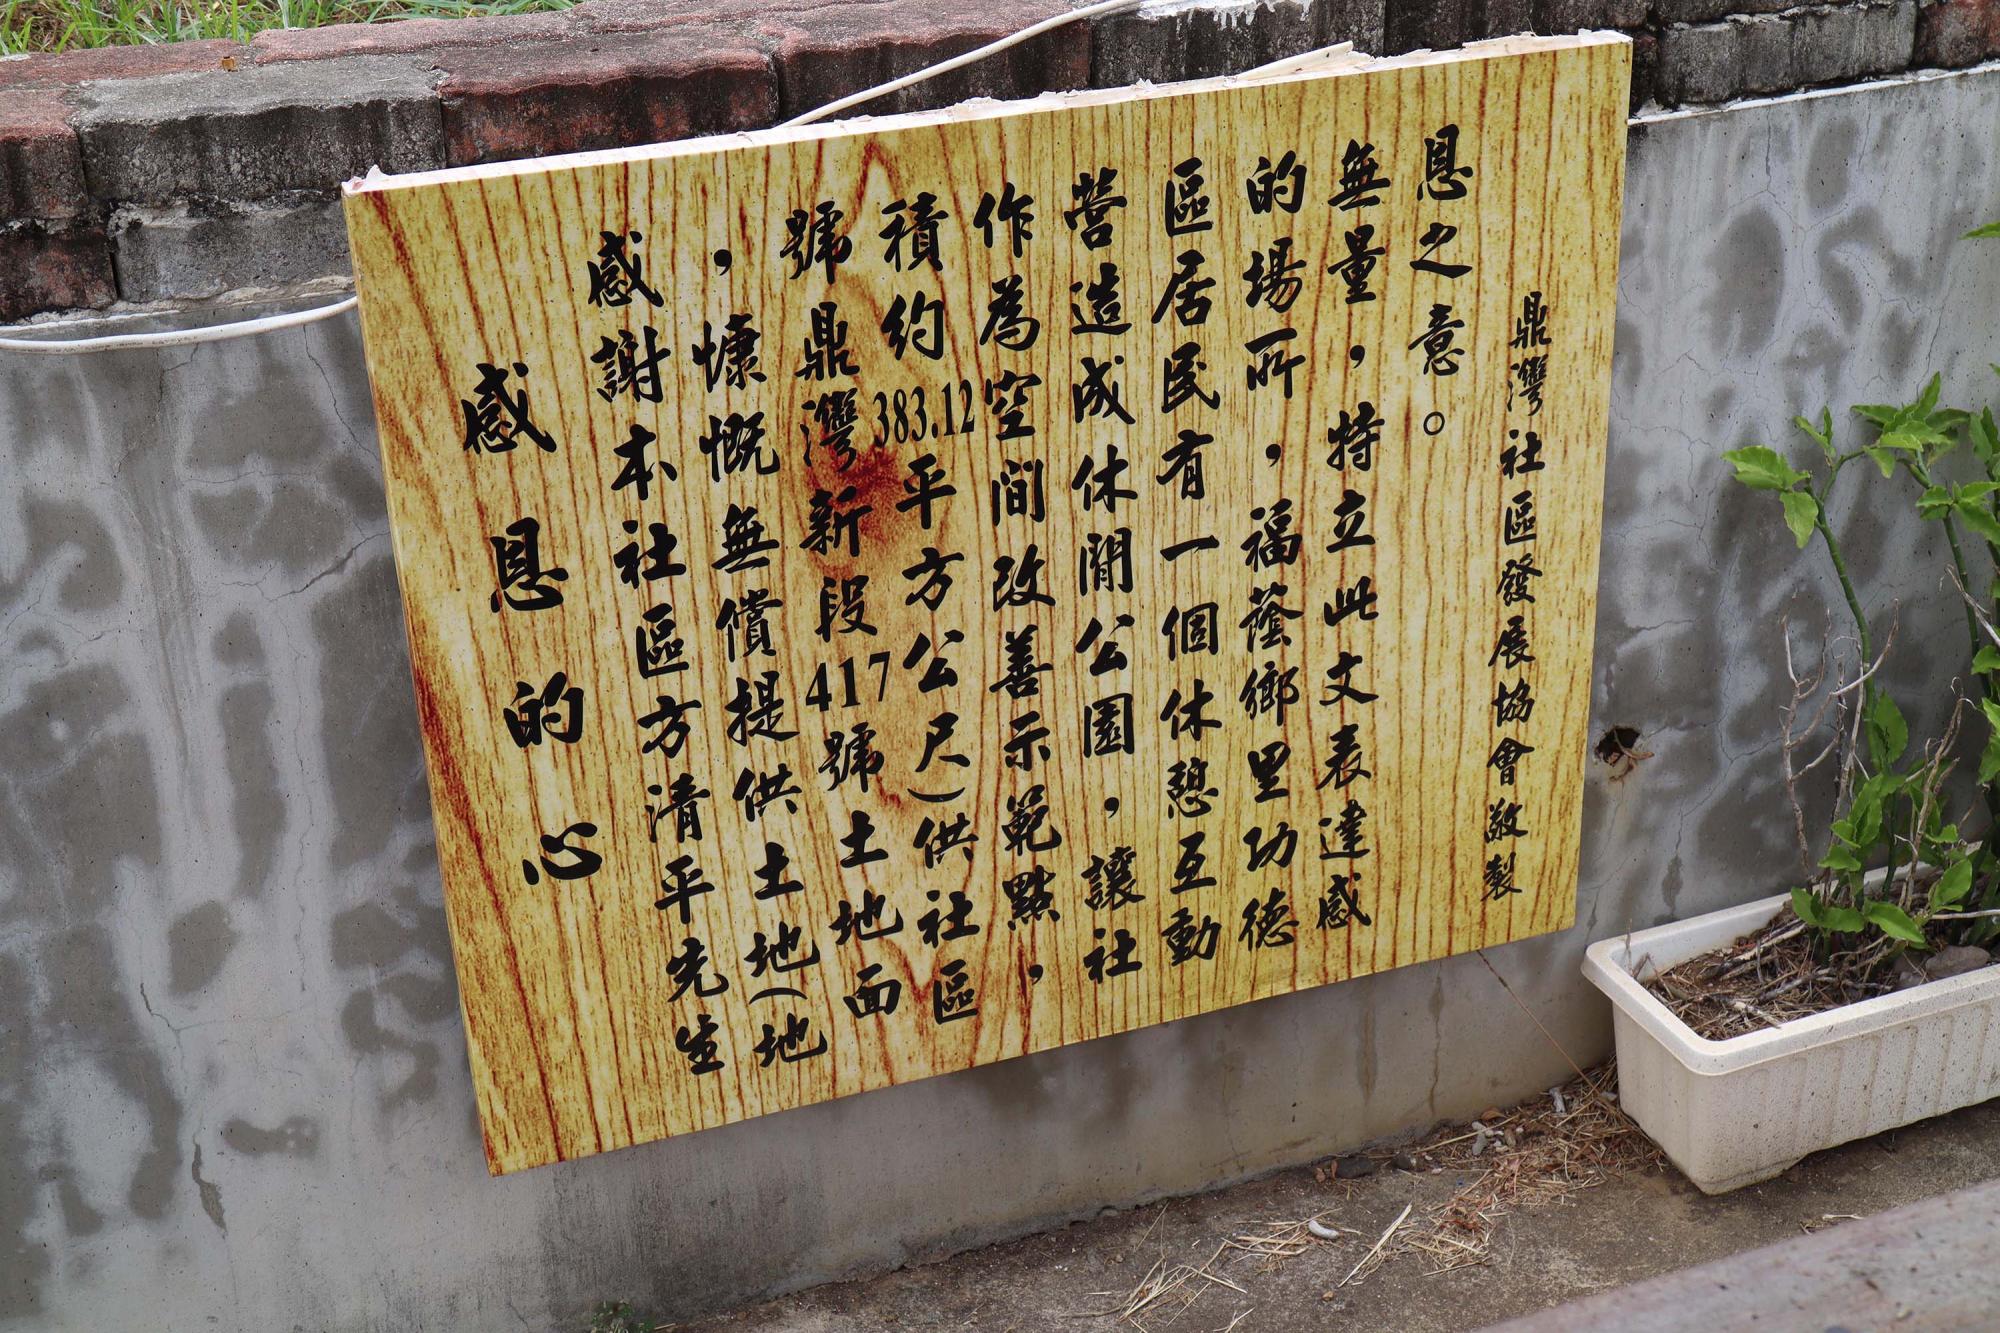 感恩的心
感謝本社區方清平先生
，慷慨無償提供土地(地
號鼎灣新段417號土地面
積約383.12平方公尺)供社區
作為空間改善示範點，
營造成休閒公園，讓社
區居民有一個休憩互動
的場所，福蔭鄉里功德
無量，特立此文表達感
恩之意。
鼎灣社區發展協會敬製